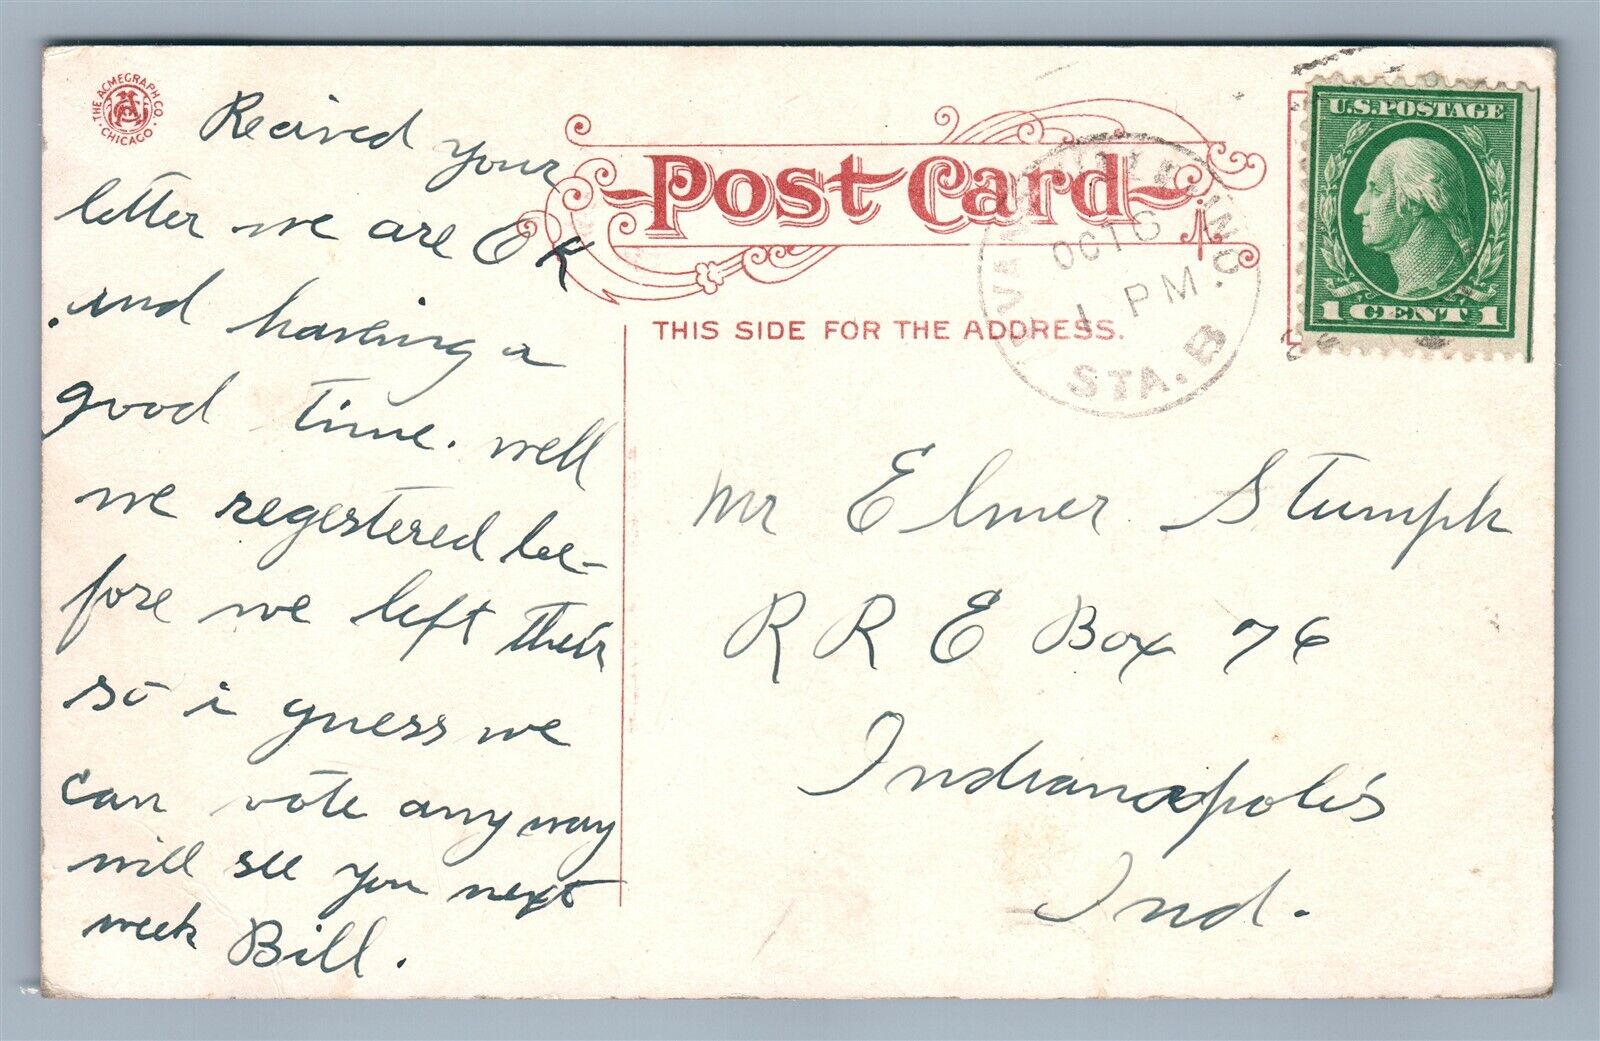 THE ACMEGRAPH CO.
CHICAGO
Post Card
THIS SIDE FOR THE ADDRESS.
EVANSVILLE, IND.
OCT 6
1 PM.
STA. B
U.S. POSTAGE
1 CENT 1
Recived your
letter we are OK
and haveing a
good time. well
we regestered be-
fore we left their
so i guess we
can vote anyway
will see you next
week Bill.
Mr Elmer Stumph
R R E Box 76
Indianapolis
Ind.